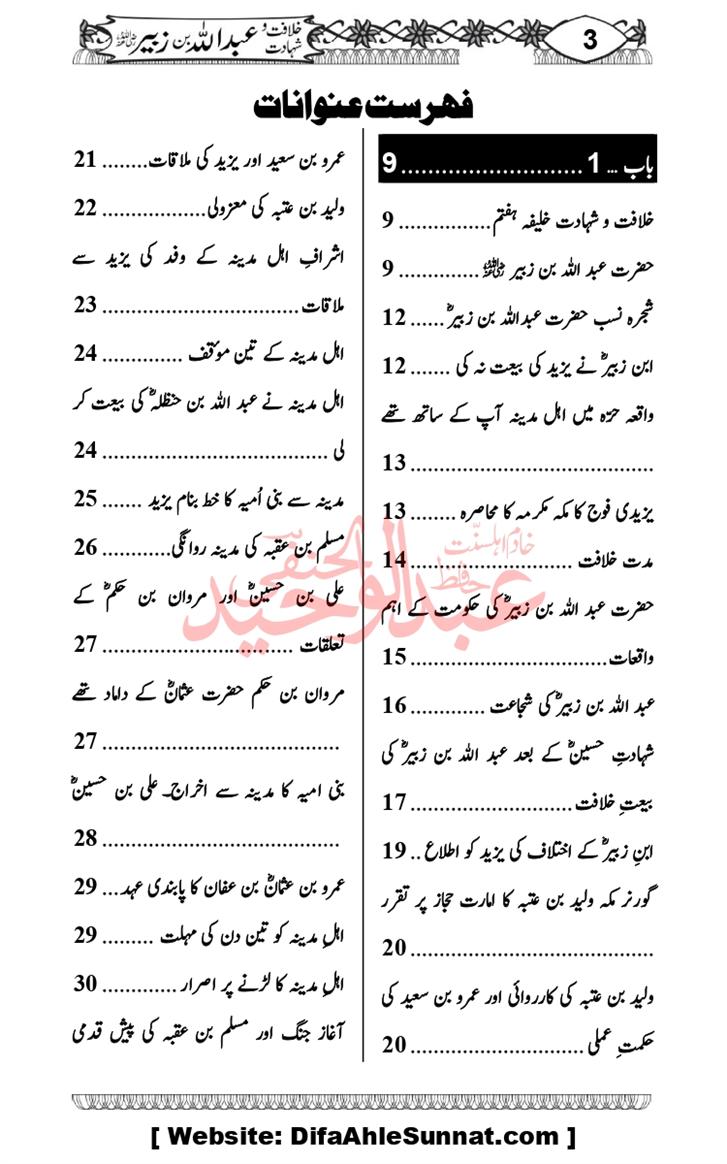 خلافت و شہادت عبد اللہ بن زبیر رضی اللہ عنہ
3
فہرست عنوانات
باب ... 1 ........................... 9
خلافت و شہادت خلیفہ ہفتم ................ 9
حضرت عبد اللہ بن زبیر رضی اللہ عنہ .............. 9
شجرہ نسب حضرت عبداللہ بن زبیرؓ ...... 12
ابن زبیرؓ نے یزید کی بیعت نہ کی ....... 12
واقعہ حرّہ میں اہل مدینہ آپ کے ساتھ تھے
.......................................... 13
یزیدی فوج کا مکہ مکرمہ کا محاصرہ ........ 13
مدت خلافت ............................ 14
حضرت عبد اللہ بن زبیرؓ کی حکومت کے اہم
واقعات .................................. 15
عبد اللہ بن زبیرؓ کی شجاعت ............. 16
شہادتِ حسینؓ کے بعد عبد اللہ بن زبیرؓ کی
بیعتِ خلافت ............................ 17
ابنِ زبیرؓ کے اختلاف کی یزید کو اطلاع .. 19
گورنر مکہ ولید بن عتبہ کا امارت حجاز پر تقرر
.......................................... 20
ولید بن عتبہ کی کارروائی اور عمرو بن سعید کی
حکمتِ عملی .............................. 20
عمرو بن سعید اور یزید کی ملاقات ........ 21
ولید بن عتبہ کی معزولی .................. 22
اشرافِ اہل مدینہ کے وفد کی یزید سے
ملاقات .................................. 23
اہل مدینہ کے تین مؤقف .............. 24
اہل مدینہ نے عبد اللہ بن حنظلہؓ کی بیعت کر
لی ....................................... 24
مدینہ سے بنی اُمیہ کا خط بنام یزید ....... 25
مسلم بن عقبہ کی مدینہ روانگی ............ 26
علی بن حسینؓ اور مروان بن حکمؓ کے
تعلقات ................................. 27
مروان بن حکم حضرت عثمانؓ کے داماد تھے
......................................... 27
بنی امیہ کا مدینہ سے اخراج۔ علی بن حسینؓ
......................................... 28
عمرو بن عثمانؓ بن عفان کا پابندی عہد ... 29
اہلِ مدینہ کو تین دن کی مہلت ......... 29
اہلِ مدینہ کا لڑنے پر اصرار .............. 30
آغاز جنگ اور مسلم بن عقبہ کی پیش قدمی
خادم اہلسنّت
حافظ عبدالوحید الحنفی
[ Website: DifaAhleSunnat.com ]